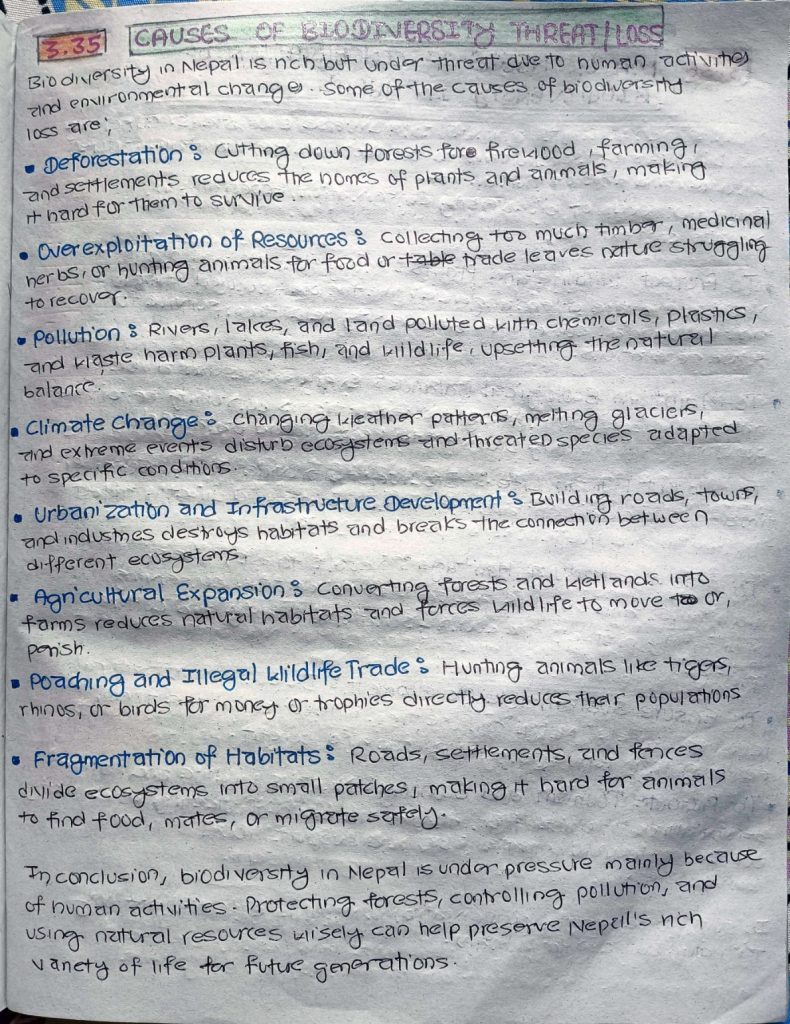 3.35 CAUSES OF BIODIVERSITY THREAT/LOSS
Biodiversity in Nepal is rich but under threat due to human activities
and environmental change. Some of the causes of biodiversity
loss are;
• Deforestation: Cutting down forests fore firewood, farming,
and settlements reduces the homes of plants and animals, making
it hard for them to survive.
• Overexploitation of Resources: Collecting too much timber, medicinal
herbs, or hunting animals for food or table trade leaves nature struggling
to recover.
• Pollution: Rivers, lakes, and land polluted with chemicals, plastics,
and waste harm plants, fish, and wildlife, upsetting the natural
balance.
• Climate Change: Changing weather patterns, melting glaciers,
and extreme events disturb ecosystems and threated species adapted
to specific conditions.
• Urbanization and Infrastructure Development: Building roads, towns,
and industries destroys habitats and breaks the connection between
different ecosystems.
• Agricultural Expansion: Converting forests and wetlands into
farms reduces natural habitats and forces wildlife to move to or,
perish.
• Poaching and Illegal Wildlife Trade: Hunting animals like tigers,
rhinos, or birds for money or trophies directly reduces their populations
• Fragmentation of Habitats: Roads, settlements, and fences
divide ecosystems into small patches, making it hard for animals
to find food, mates, or migrate safely.
In conclusion, biodiversity in Nepal is under pressure mainly because
of human activities. Protecting forests, controlling pollution, and
using natural resources wisely can help preserve Nepal's rich
variety of life for future generations.